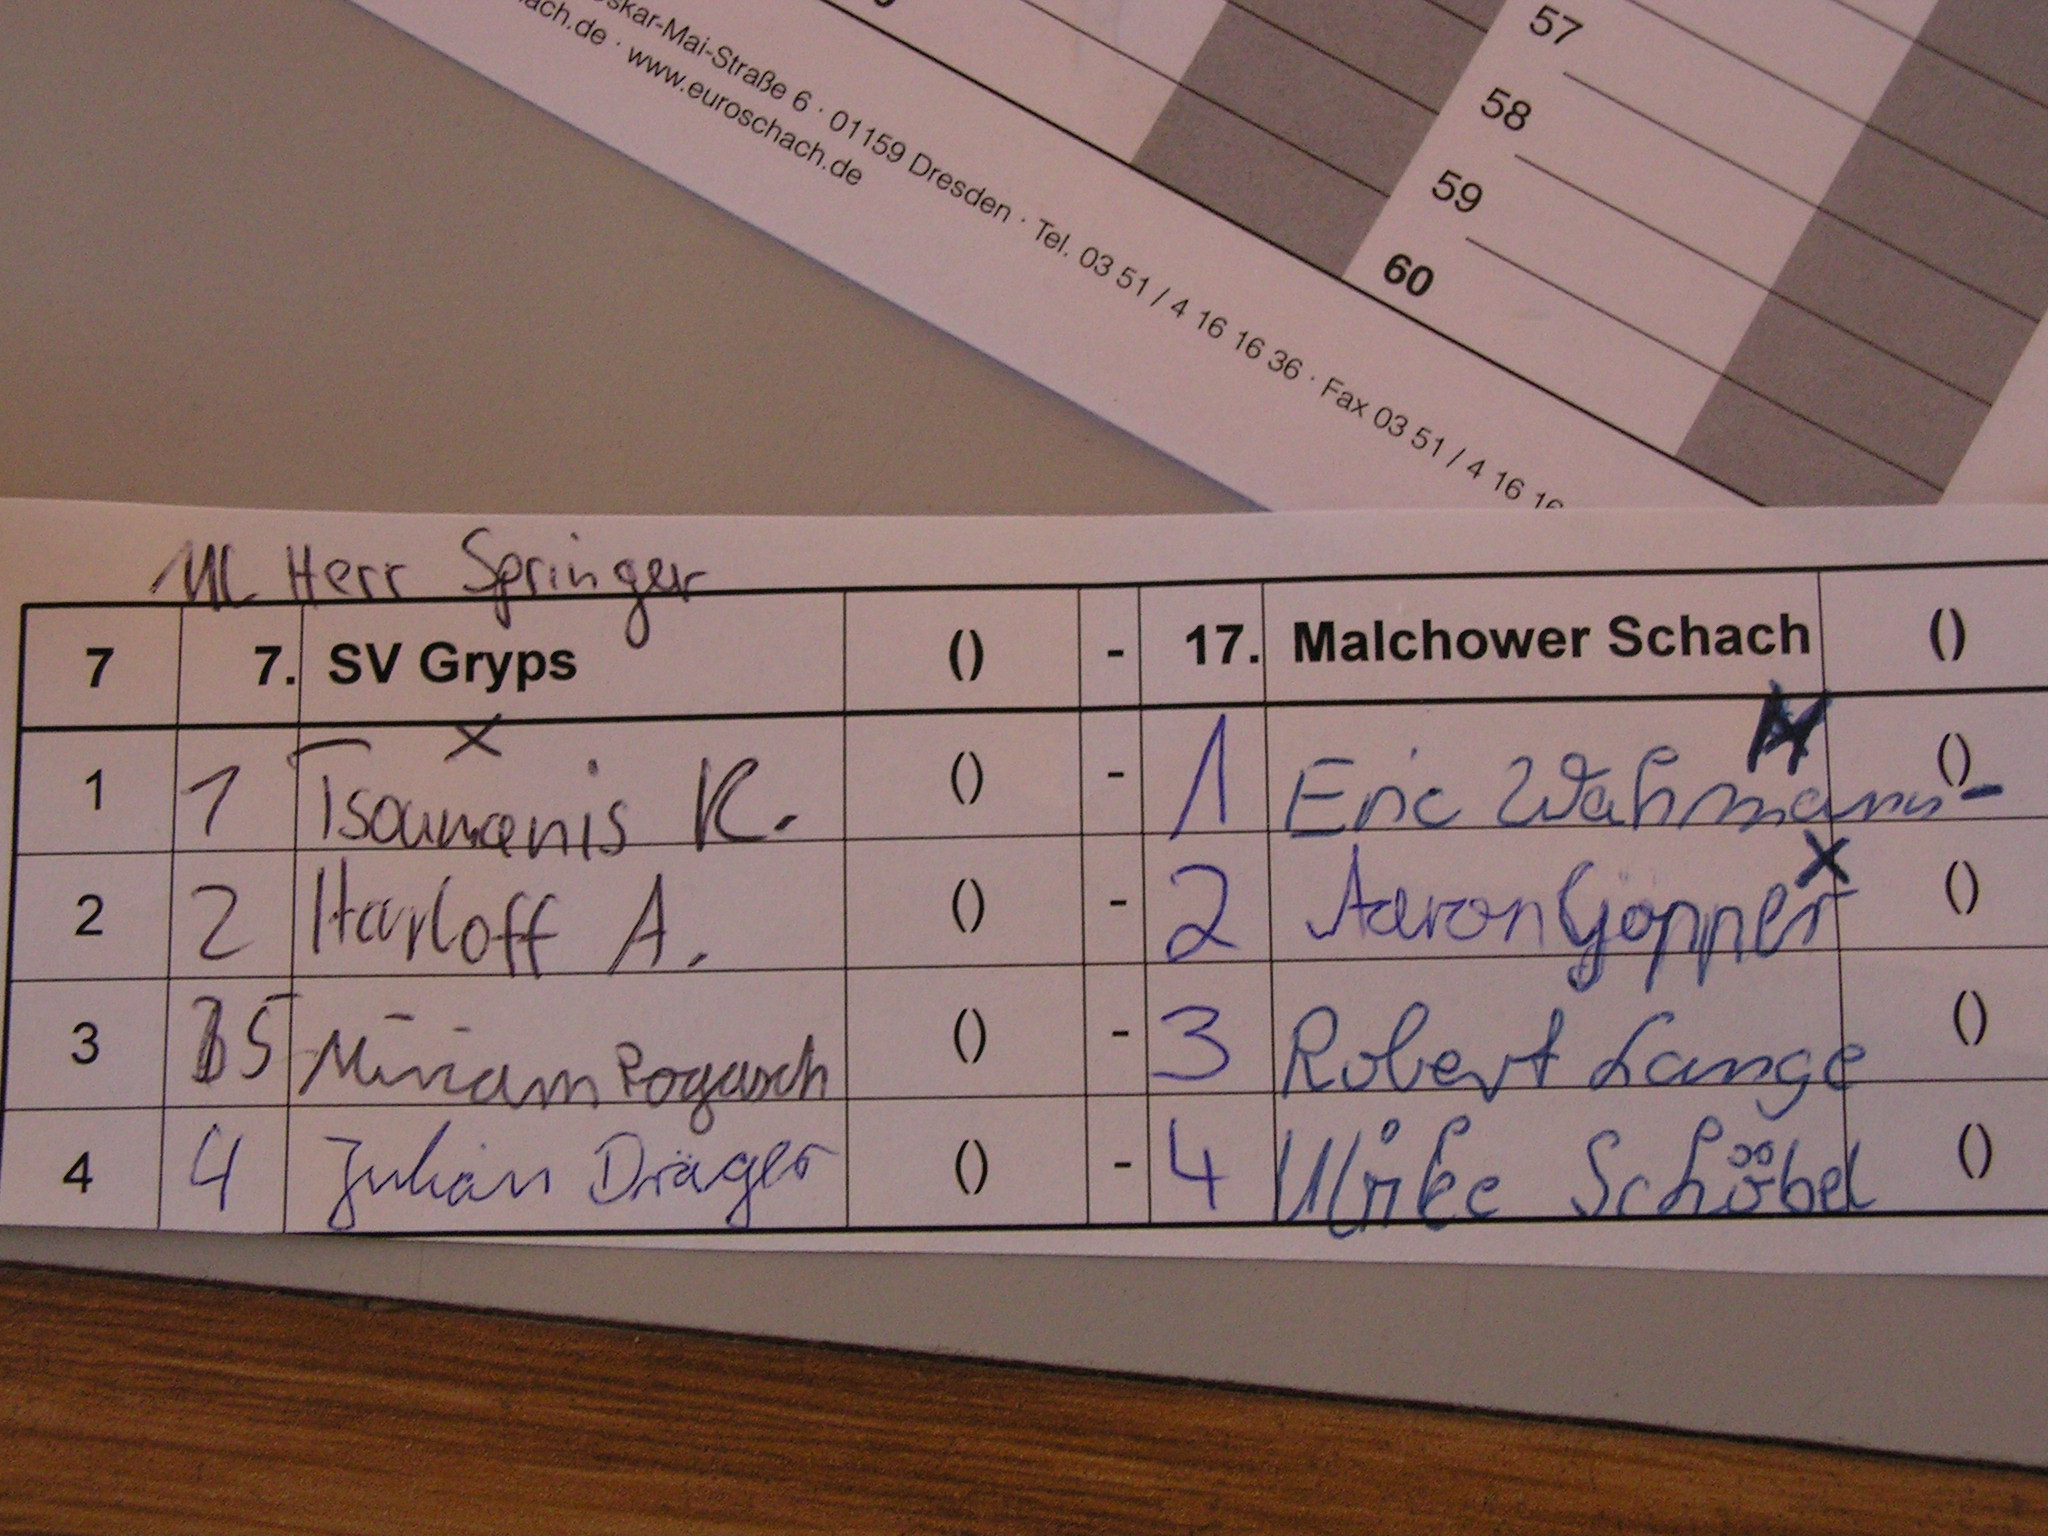 skar-Mai-Straße 6 · 01159 Dresden · Tel. 03 51 / 4 16 16 36 · Fax 03 51 / 4 16 16
ach.de · www.euroschach.de
57
58
59
60
Herr Springer
7 7. SV Gryps () - 17. Malchower Schach ()
1 1 Tsoumanis K. () - 1 Eric Wahrmann ()
2 2 Harloff A. () - 2 Aaron Göpper ()
3 5 Miriam Pogasch () - 3 Robert Lange ()
4 4 Julian Dräger () - 4 Ulrike Schöbel ()